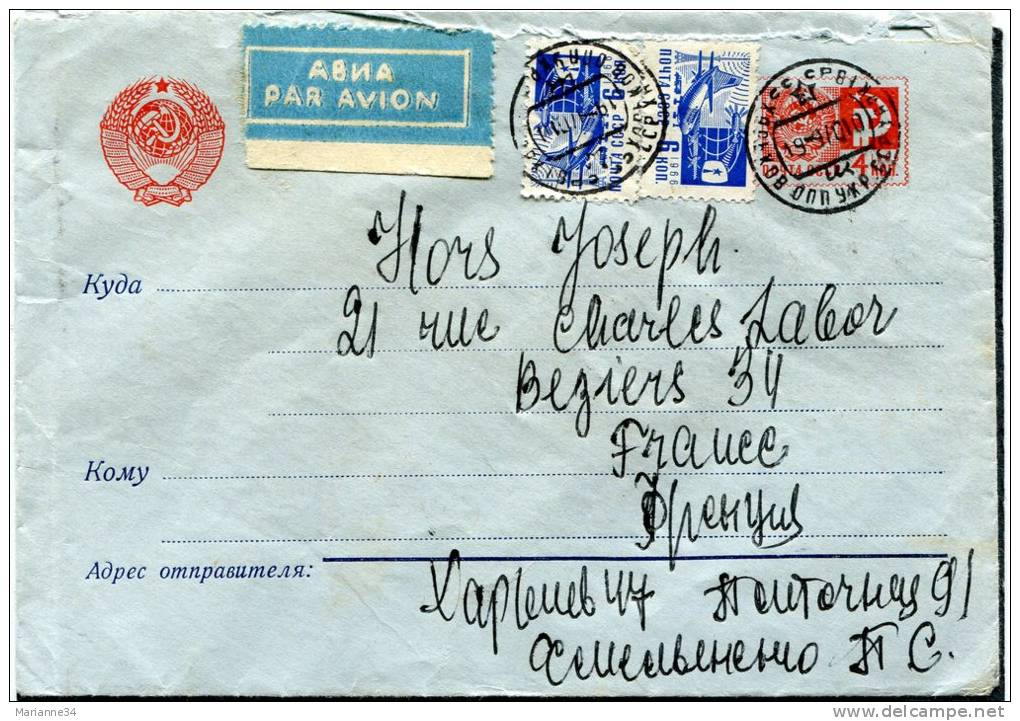 АВИА
PAR AVION
ПОЧТА СССР 6 КОП
ПОЧТА СССР 1966 6 КОП
ПОЧТА СССР 4 КОП.
Hors Joseph.
Куда
21 rue Charles Labor
Beziers 34
France
Кому
Френция
Адрес отправителя:
Харьков 47
91
П С.
Marianne34
delcampe.net